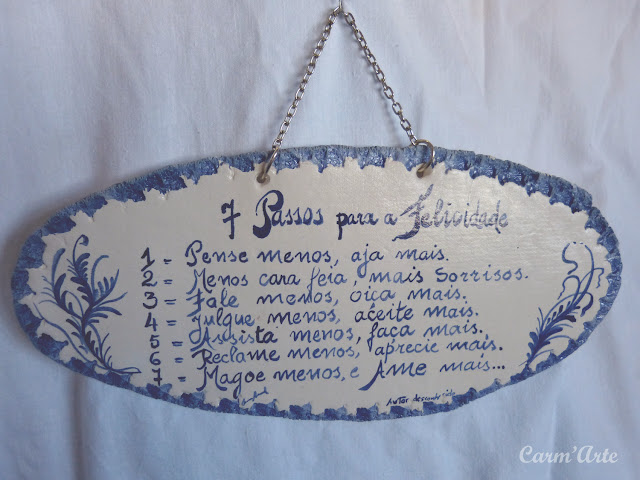 7 Passos para a Felicidade
1 = Pense menos, aja mais.
2 = Menos cara feia, mais Sorrisos.
3 = Fale menos, oiça mais.
4 = Julgue menos, aceite mais.
5 = Assista menos, faça mais.
6 = Reclame menos, aprecie mais.
7 = Magoe menos, e Ame mais...
Autor desconhecido
Carm'Arte